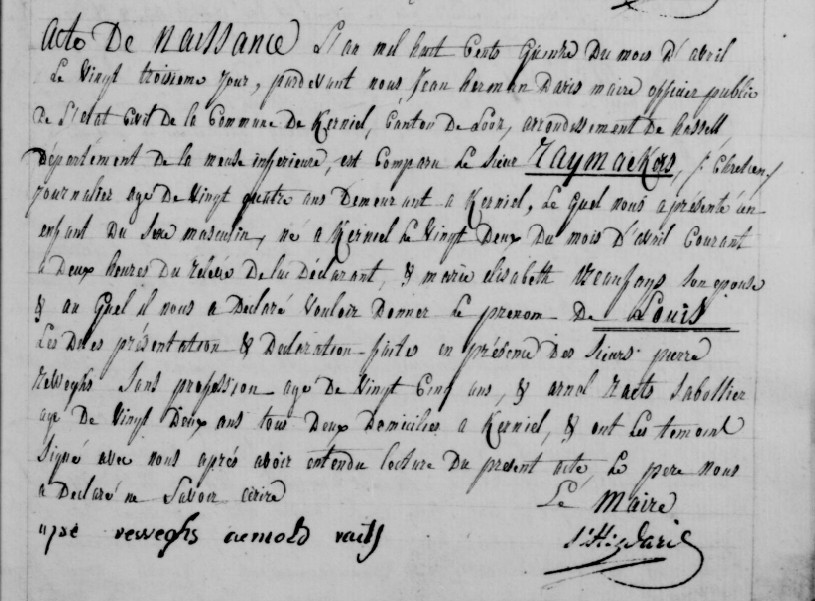 Acte De Naissance L'an mil huit Cents Quinze Du mois D'avril
Le Vingt troisieme jour, pardevant nous Jean herman Daris maire officier public
De L'Etat Civil De la Commune De Kerniel, Canton de Looz, arrondissement De hasselt
Département De la meuse inferieure, est Comparu Le sieur Raymaekers,
journalier agé De Vingt quatre ans Demeurant a Kerniel, Le quel nous a présenté un
enfant Du sexe masculin, né a Kerniel Le Vingt Deux Du mois D'avril Courant
a Deux heures Du relévé De lui Déclarant, & marie elisabeth son epouse
& au quel il nous a Declaré Vouloir Donner Le prenom De Louis
Les Dites présentation & Declaration faites en présence Des sieurs pierre
reweghs sans profession agé De Vingt Cinq ans, & arnol raets sabottier
agé De Vingt Deux ans tous Deux Domiciliés a Kerniel, & ont Les temoins
signé avec nous aprés avoir entendu lecture Du present acte, Le pere nous
a Declaré ne Savoir ecrire
Le Maire
arnold raets